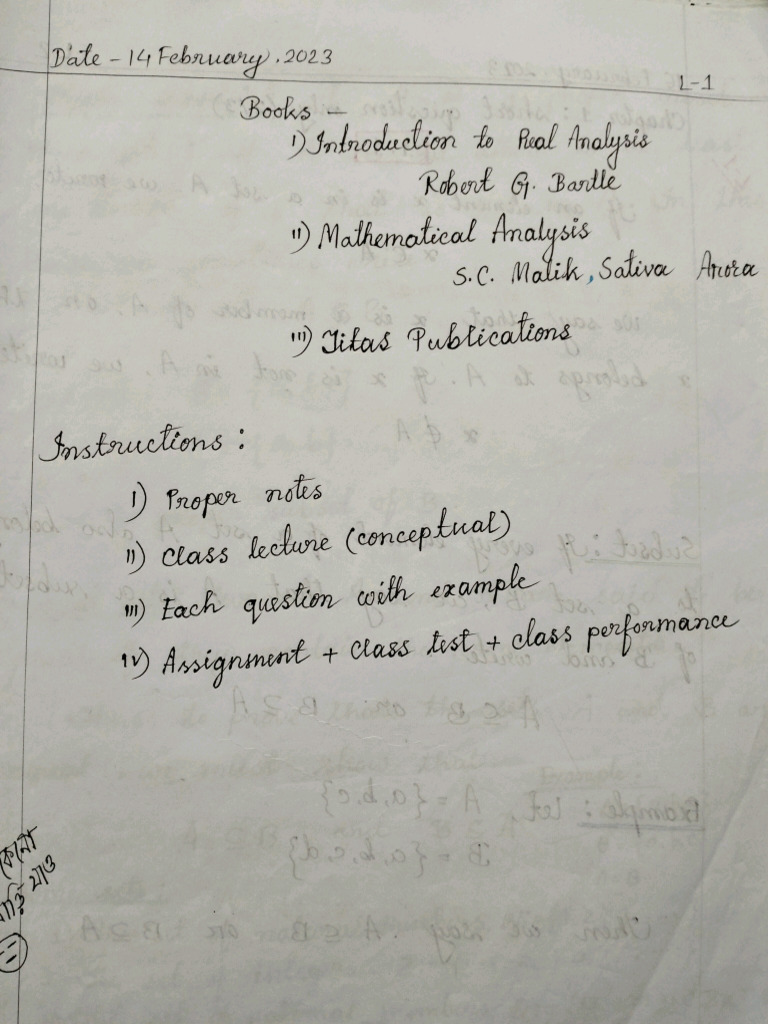 Date - 14 February. 2023
L-1
Books -
i) Introduction to Real Analysis
Robert G. Bartle
ii) Mathematical Analysis
S.C. Malik, Sativa Arora
iii) Titas Publications
Instructions :
i) Proper notes
ii) Class lecture (conceptual)
iii) Each question with example
iv) Assignment + class test + class performance
যাও